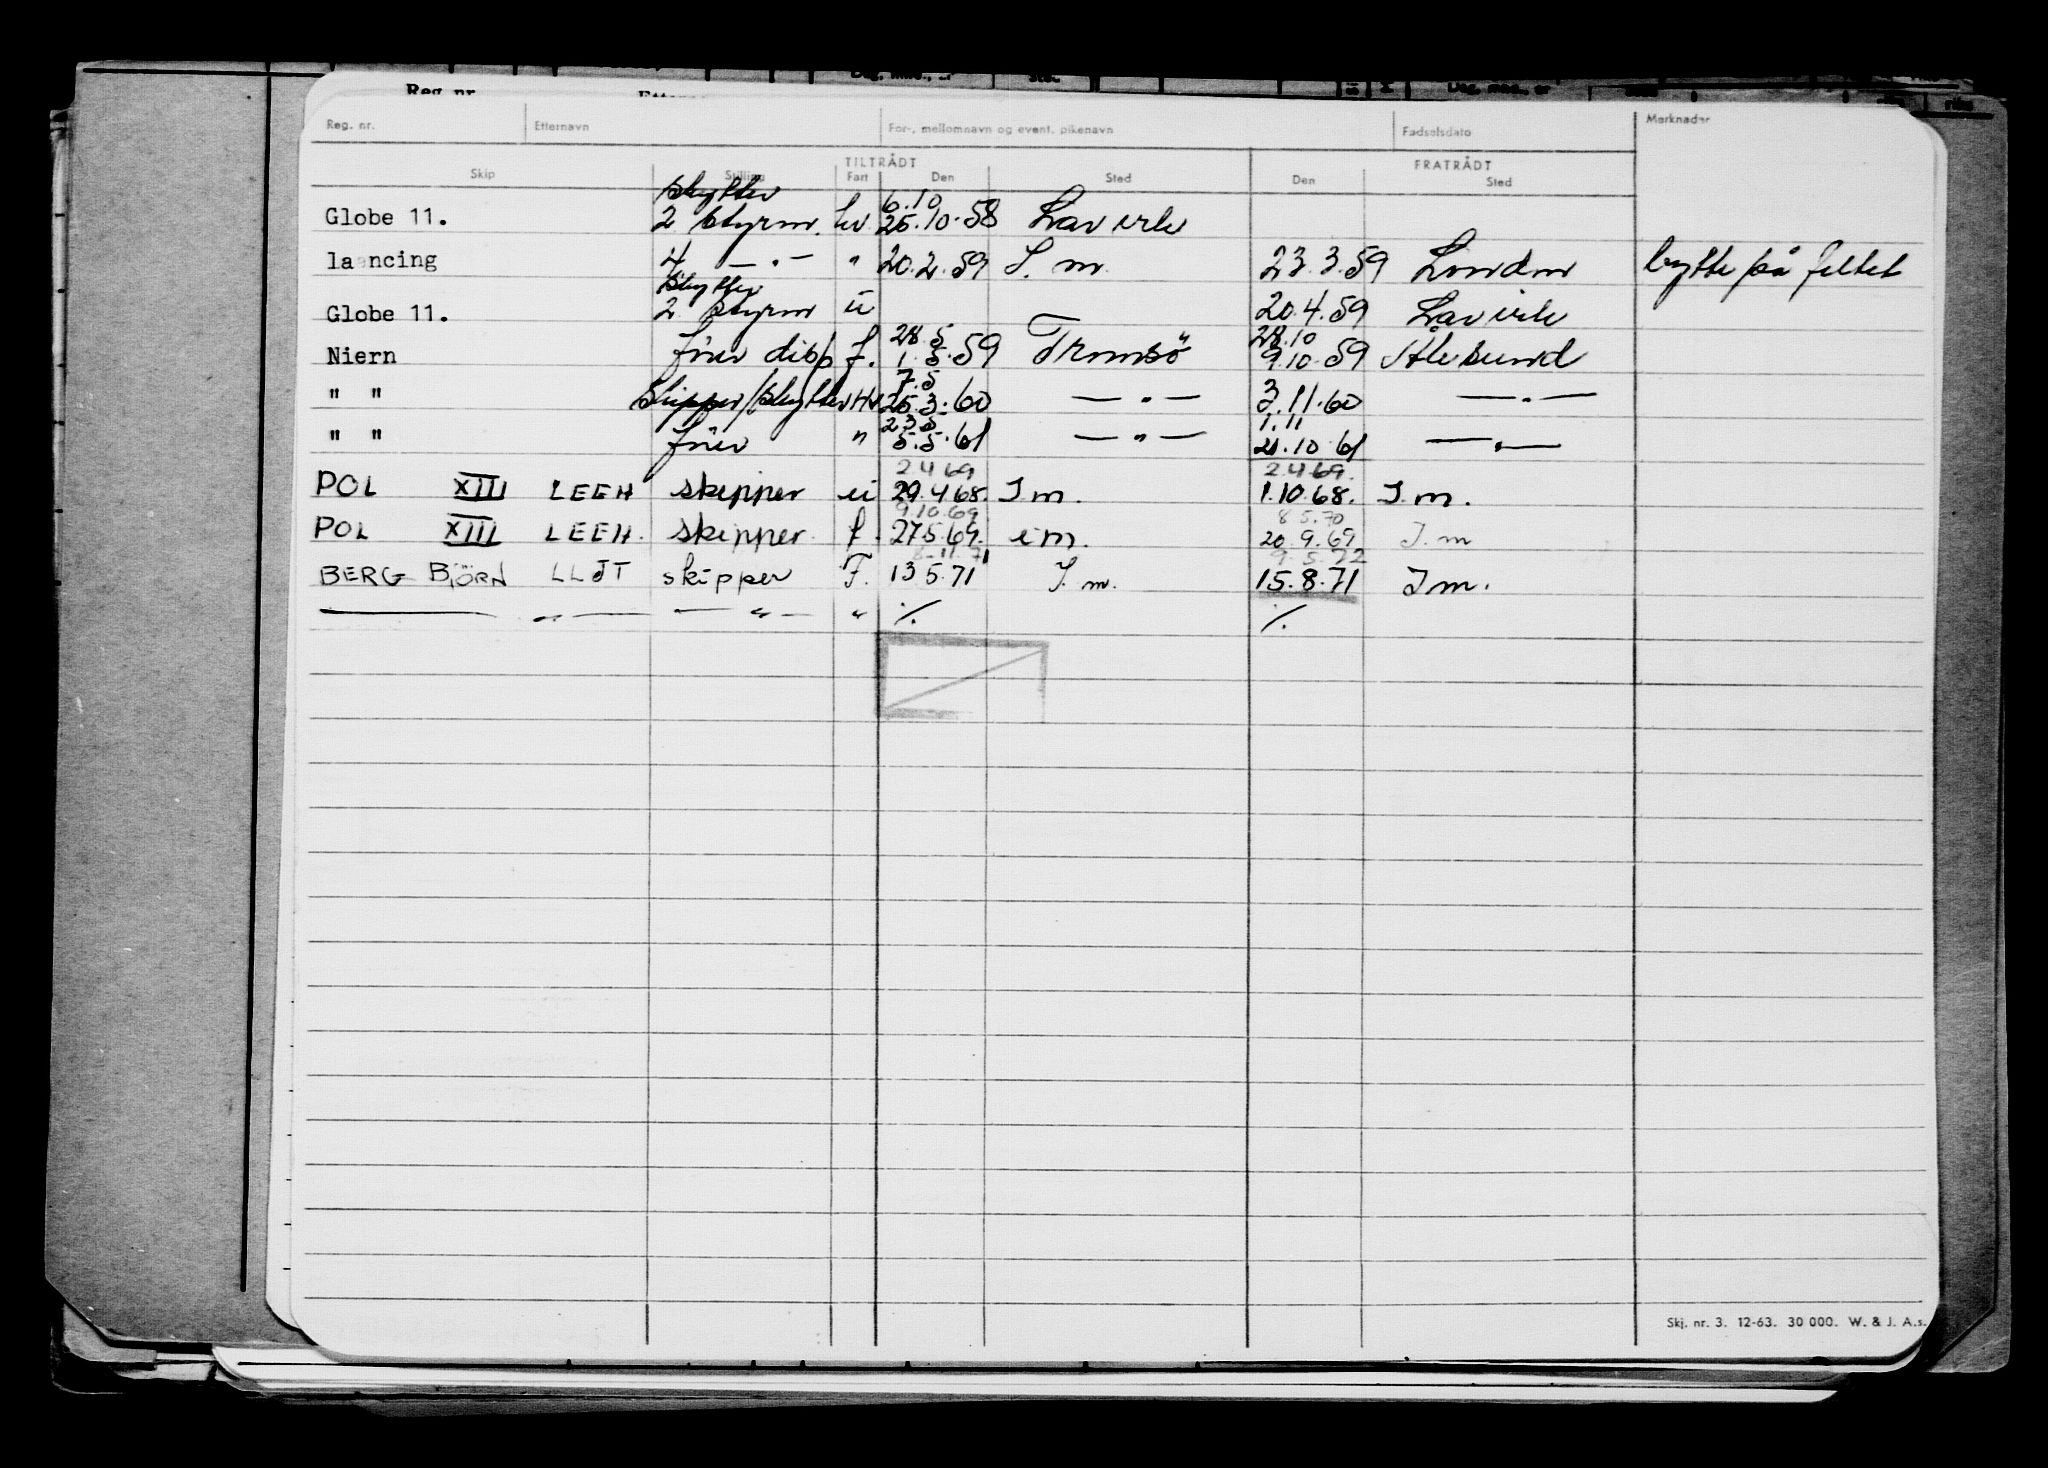 Reg. nr. Etternavn For-, mellomnavn og event. pikenavn Fødselsdato Merknader
TILTRÅDT FRATRÅDT
Skip Stilling Fart Den Sted Den Sted
skytter 6.10
Globe 11. 2 styrm. hv. 25.10.58 Larvik
lancing 4 — " — " 20.2.59 I. m. 23.3.59 London bytte på feltet
skytter
Globe 11. 2 styrm ü 20.4.59 Larvik
28.5 28.10
Niern fører disp f. 1.5.59 Tromsö 9.10.59 Ålesund
7.5
" " Skipper/skytter Hv 25.3.60 — " — 3.11.60 — " —
23.5 1.11
" " fører " 5.5.61 — " — 21.10 61 — " —
2 4 69 2.4.69.
POL XIII LEEH skipper ui 29.4 68. I m. 1.10.68. I. m.
9.10.69 8.5.70
POL XIII LEEH. skipper. f. 27.5.69. i m. 20.9.69 I. m
8.11.71 9.5.72
BERG BJÖRN LLJT skipper F. 13 5.71 I. m. 15.8.71 I m.
— " — — " — " ⁒ ⁒
Skj. nr. 3. 12-63. 30 000. W. & J. A.s.